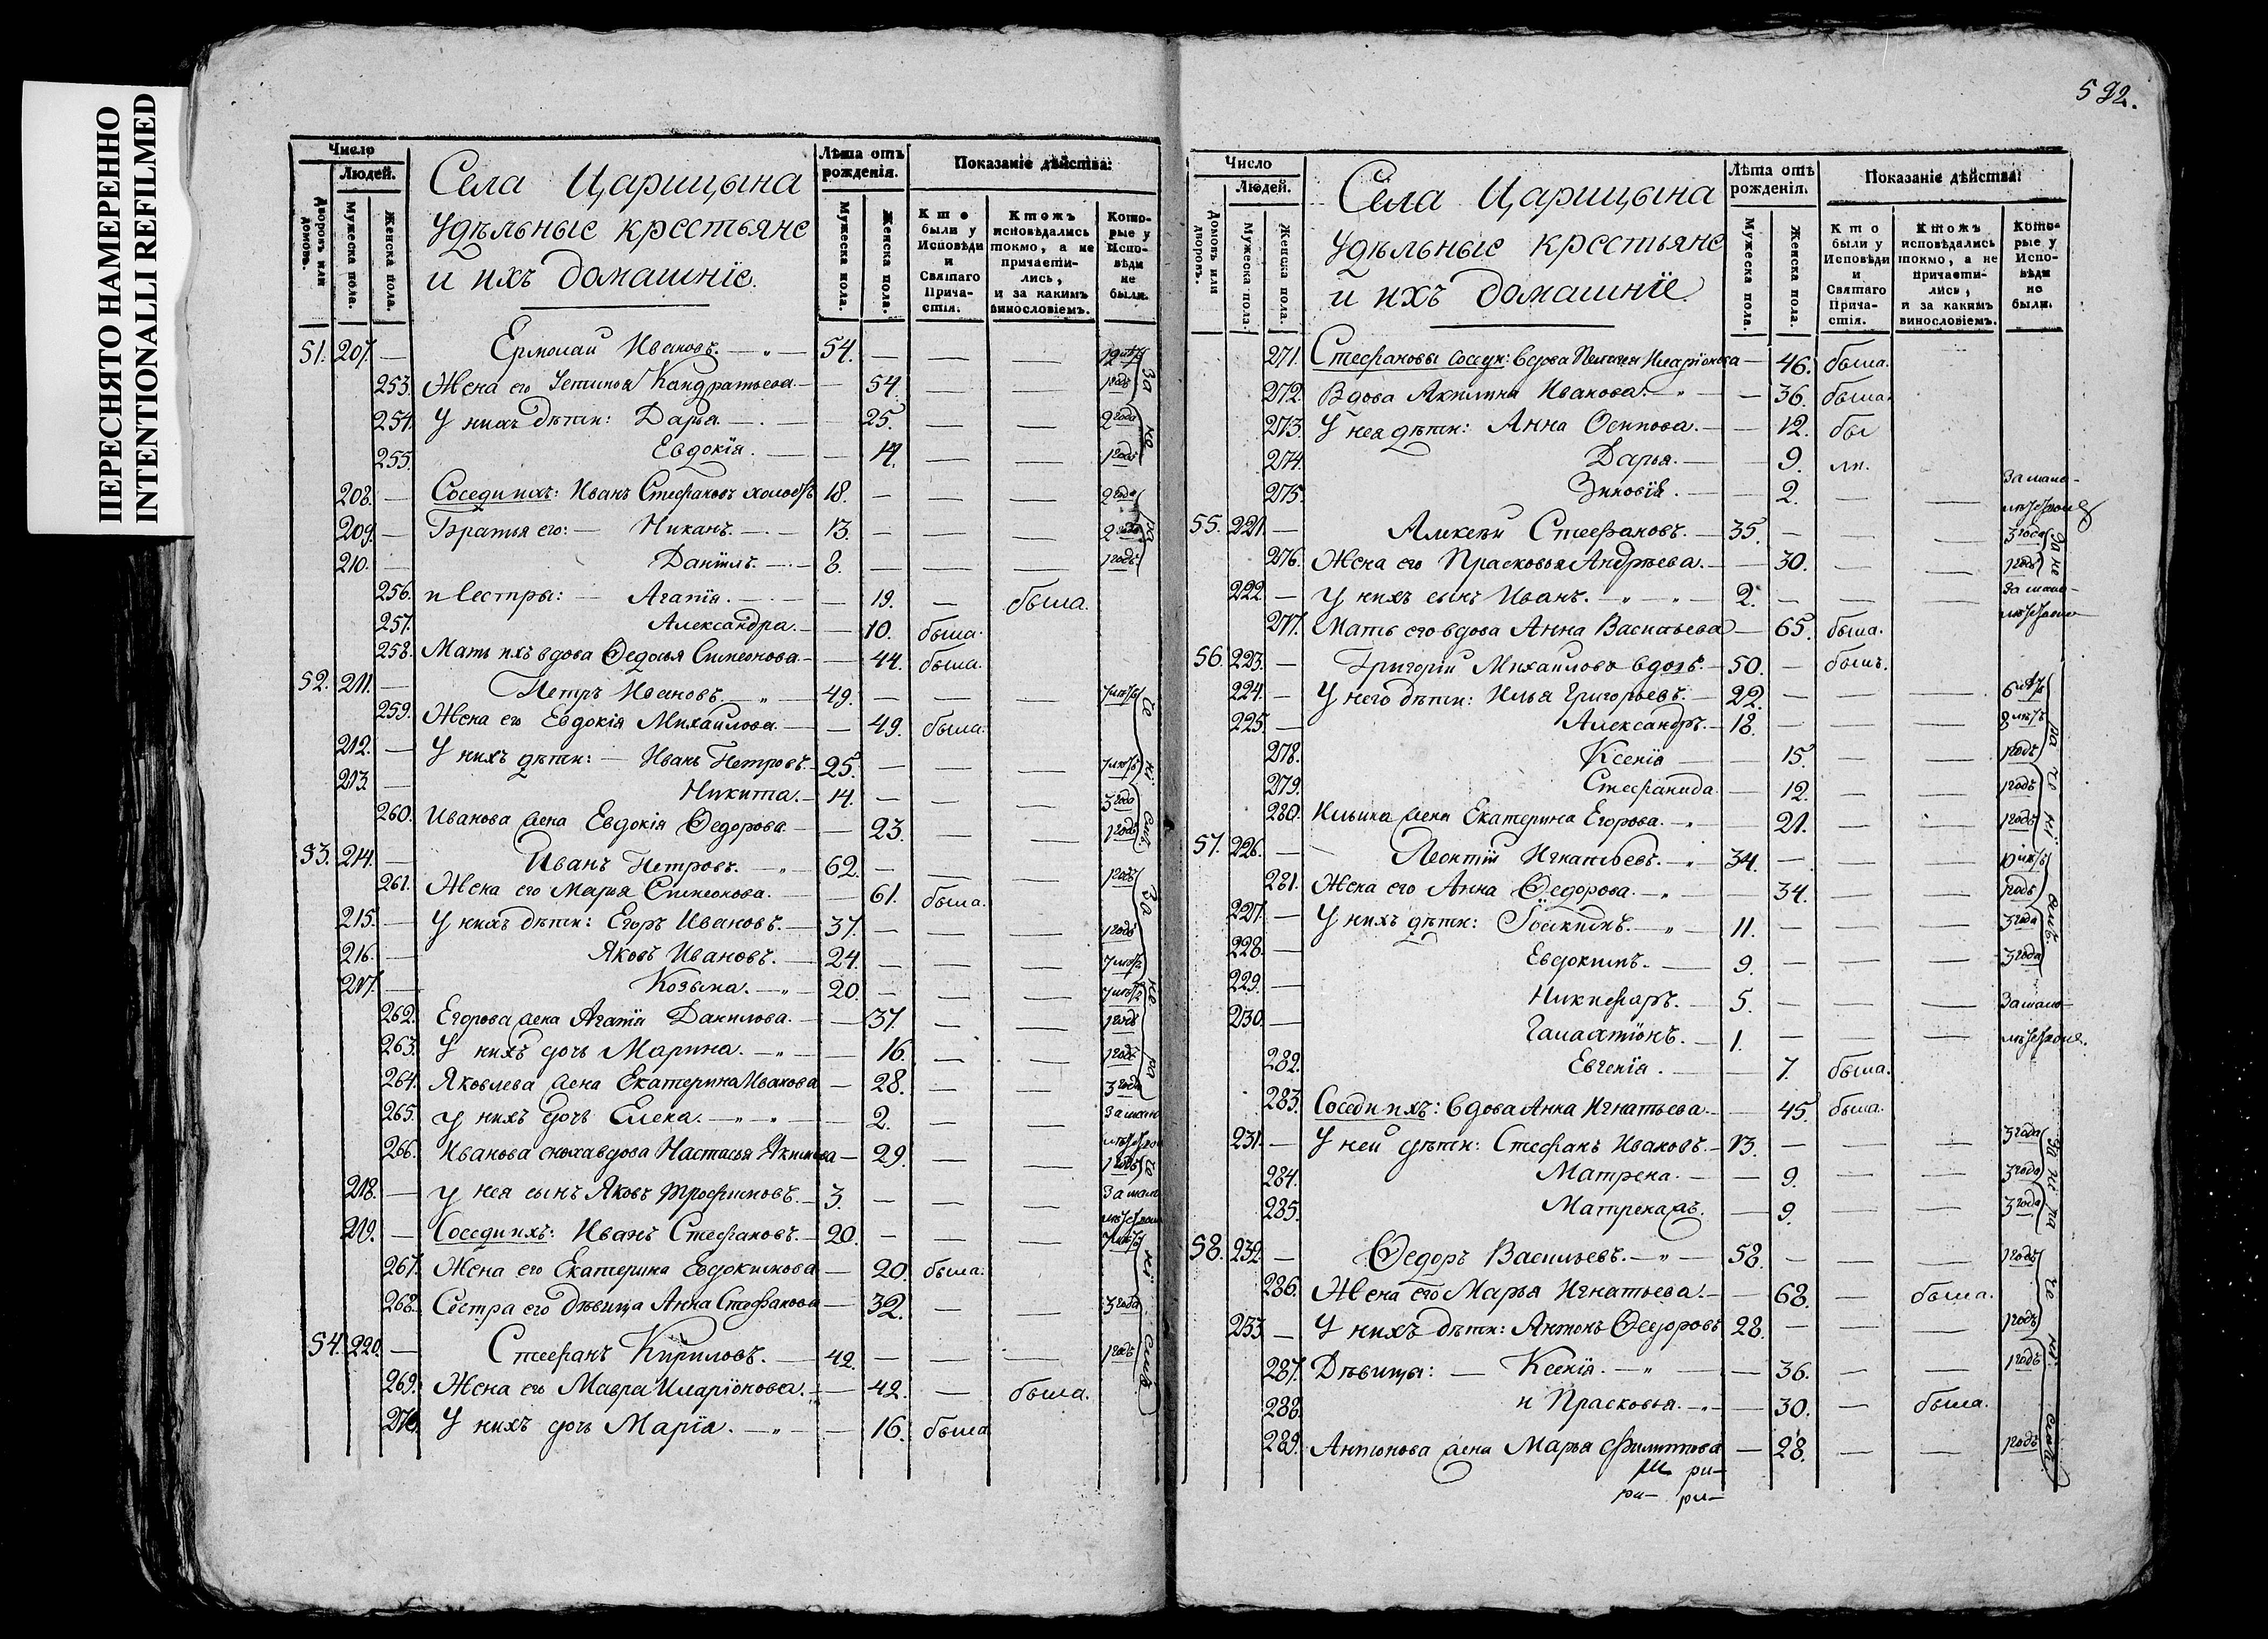 ПЕРЕСНЯТО НАМЕРЕННО
INTENTIONALLI REFILMED
Число
Людей.
Дворовъ или домовъ.
Мужеска пола.
Женска пола.
Села Царицына
Удѣльные крестьяне
и ихъ домашніе.
Лѣта отъ рожденія.
Мужеска пола.
Женска пола.
Показаніе дѣйства:
Кто были у Исповѣди и Святаго Причастія.
Ктожъ исповѣдались токмо, а не причастились, и за какимъ винословіемъ.
Которые у Исповѣди не были.
51. 207. — Ермолаи Ивановъ. — 54. — — —
253. Жена его Устинья Кандратьева — — 54. — — 1 годъ
254. У нихъ дѣти: Дарья. — — 25. — — 2 года
255. Евдокія. — — 14. — — 1 годъ
208. — Соседи ихъ: Иванъ Стефановъ 18. — — — 2 года
209. — Братья его: — Никанъ. — 13. — — — 2 года
210. — Данїилъ. — 8. — — — 1 годъ
256. и Сестры: — Агапїя. — — 19. — была.
257. Александра. — — 10. была.
258. Мать ихъ вдова Ѳедосья Симеонова — — 44. была.
52. 211. — Петръ Ивановъ. — 49. — — — 7 лѣтъ
259. Жена его Евдокія Михаилова. — — 49. была.
212. — У нихъ дѣти: — Иванъ Петровъ. — 25. — — — 7 лѣтъ
213. — Никита. — 14. — — — 3 года
260. Иванова жена Евдокія Ѳедорова — — 23. — — 1 годъ
53. 214. — Иванъ Петровъ. — 62. — — — 1 годъ
261. Жена его Марья Симеонова. — — 61. была.
215. — У нихъ дѣти: Егоръ Ивановъ. — 37. — — — 1 годъ
216. — Яковъ Ивановъ. — 24. — — — 7 лѣтъ
217. — Козьма. — 20. — — — 7 лѣтъ
262. Егорова жена Агапїя Данилова. — — 37. — — 1 годъ
263. У нихъ дочь Марина. — — 16. — — 1 годъ
264. Яковлева жена Екатерина Иванова — 28. — — 3 года
265. У нихъ дочь Елена. — — 2. — — За мало
266. Иванова сноха вдова Настасья — 29. — — 1 годъ
218. — У нея сынъ Яковъ Трофимовъ. — 3. — — — За мало
219. — Соседи ихъ: Иванъ Стефановъ. — 20. — — — 7 лѣтъ
267. Жена его Екатерина Евдокимова — 20. была.
268. Сестра его дѣвица Анна Стефанова — 32. — — 3 года
54. 220. — Стефанъ Кириловъ. — 42. — — — 1 годъ
269. Жена его Мавра Иларіонова. — — 42. — была.
270. У нихъ дочь Марїя. — — 16. была
592.
Число
Людей.
Домовъ или дворовъ.
Мужеска пола.
Женска пола.
Села Царицына
Удѣльные крестьяне
и ихъ домашнїе.
Лѣта отъ рожденія.
Мужеска пола.
Женска пола.
Показаніе дѣйства:
Кто были у Исповѣди и Святаго Причастія.
Ктожъ исповѣдались токмо, а не причастились, и за какимъ винословіемъ.
Которые у Исповѣди не были.
271. Стефановы вдова Пелагея Иларіонова — 46. была.
272. Вдова Акилина Иванова. — — 36. была.
273. У нея дѣти: Анна Осипова. — — 12. бы
274. Дарья. — — 9. ли.
275. Зиновїя. — — 2. — — За мало-
55. 221. — Алексѣи Стефановъ. — 35. — — — 3 года
276. Жена его Прасковья Андрѣева. — — 30. — — 1 годъ
222. — У нихъ сынъ Иванъ. — 2. — — — За мало-
277. Мать его вдова Анна Васильева — 65. была.
56. 223. — Григорїи Михаиловъ вдовъ. — 50. — былъ.
224. — У него дѣти: Илья Григорьевъ. — 22. — — — 6 лѣтъ
225. — Александръ. — 18. — — — 8 лѣтъ
278. Ксенїя — — 15. — — 1 годъ
279. Стефанида — 12. — — 1 годъ
280. Ильина жена Екатерина Егорова. — — 21. — — 1 годъ
57. 226. — Леонтїи Игнатьевъ. — 34. — — —
281. Жена его Анна Ѳедорова. — — 34. — — 1 годъ
227. — У нихъ дѣти: — 11. — — — 3 года
228. — Евдокимъ. — 9. — — — 3 года
229. — Никифаръ. — 5. — — — За мало-
230. — Галактїонъ. — 1. — — —
282. Евгенїя. — — 7. была.
283. Соседи ихъ: вдова Анна Игнатьева. — — 45. была.
231. — У неи дѣти: Стефанъ Ивановъ. — 13. — — — 3 года
284. Матрена. — — 9. — — 3 года
285. Матрена жъ. — 9. — — 3 года
58. 232. — Ѳедоръ Васильевъ. — 58. — — — 1 годъ
286. Жена его Марья Игнатьева. — — 68. — была.
233. — У нихъ дѣти: Антонъ Ѳедоровъ 28. — — — 1 годъ
287. Дѣвицы: — Ксенїя. — — 36. — — 1 годъ
288. и Прасковья. — — 30. — была.
289. Антонова жена Марья Филиппова — 28. — — 1 годъ